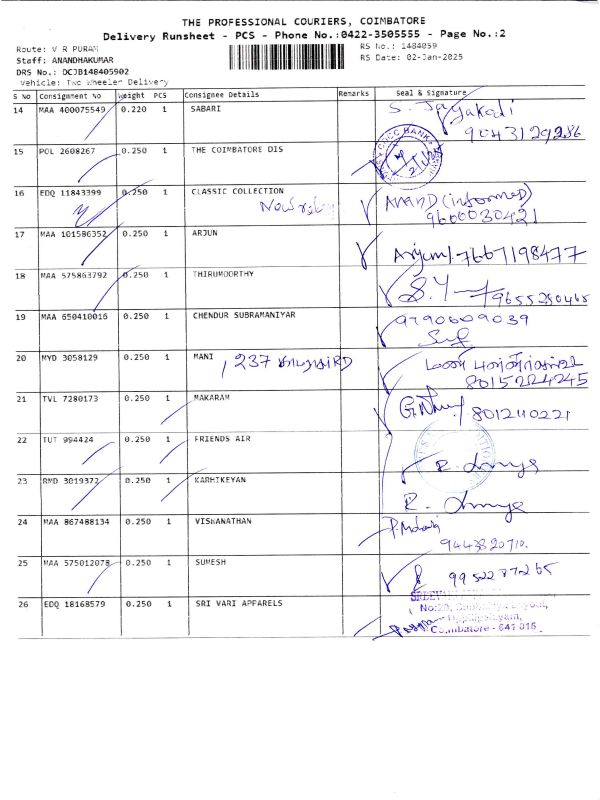 THE PROFESSIONAL COURIERS, COIMBATORE
Delivery Runsheet - PCS - Phone No.:0422-3505555 - Page No.:2
Route: V R PURAM RS No.: 1484059
Staff: ANANDHAKUMAR RS Date: 02-Jan-2025
DRS No.: DCJB148405902
Vehicle: Two Wheeler Delivery
S No Consignment No Weight PCS Consignee Details Remarks Seal & Signature
14 MAA 400075549 0.220 1 SABARI S. Jayakodi
9043129286
15 POL 2608267 0.250 1 THE COIMBATORE DIS
16 EDQ 11843399 0.250 1 CLASSIC COLLECTION ANAND (informed)
9600030421
17 MAA 101586352 0.250 1 ARJUN Arjun 7667198477
18 MAA 575863792 0.250 1 THIRUMOORTHY S.Y 9655280465
19 MAA 650410016 0.250 1 CHENDUR SUBRAMANIYAR 9790609039
20 MYD 3058129 0.250 1 MANI , 237 RD மணி
8015224245
21 TVL 7280173 0.250 1 MAKARAM 8012110221
22 TUT 994424 0.250 1 FRIENDS AIR
23 RMD 3019372 0.250 1 KARHIKEYAN
24 MAA 867488134 0.250 1 VISHANATHAN
9443820710.
25 MAA 575012078 0.250 1 SUMESH 9952287265
26 EDQ 18168579 0.250 1 SRI VARI APPARELS
Coimbatore - 641 016